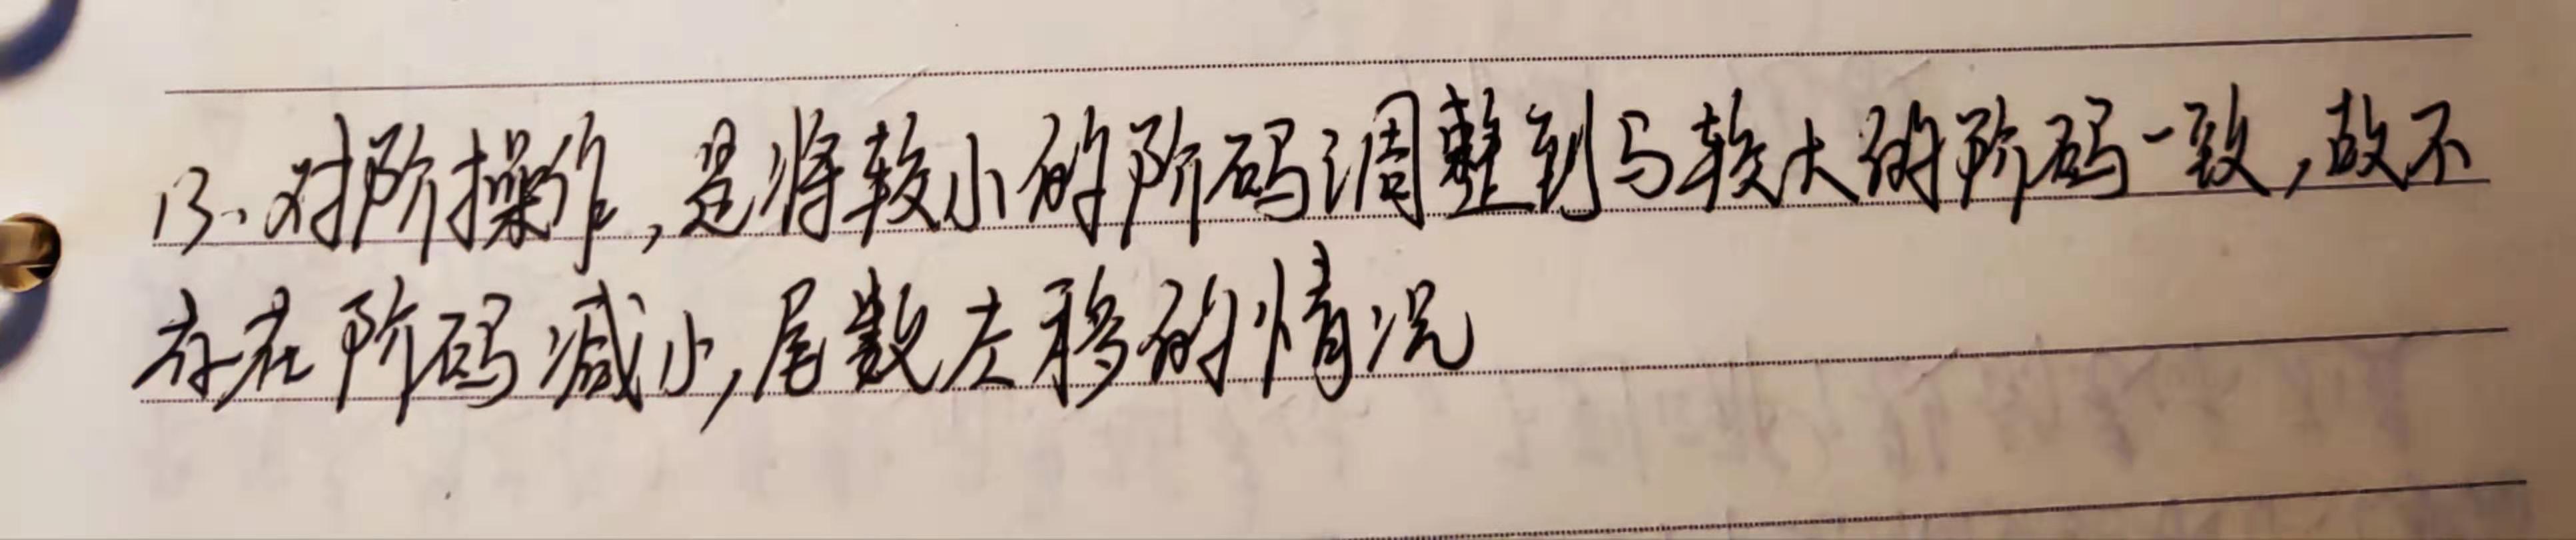 13、对阶操作,是将较小的阶码调整到与较大的阶码一致,故不
存在阶码减小,尾数左移的情况